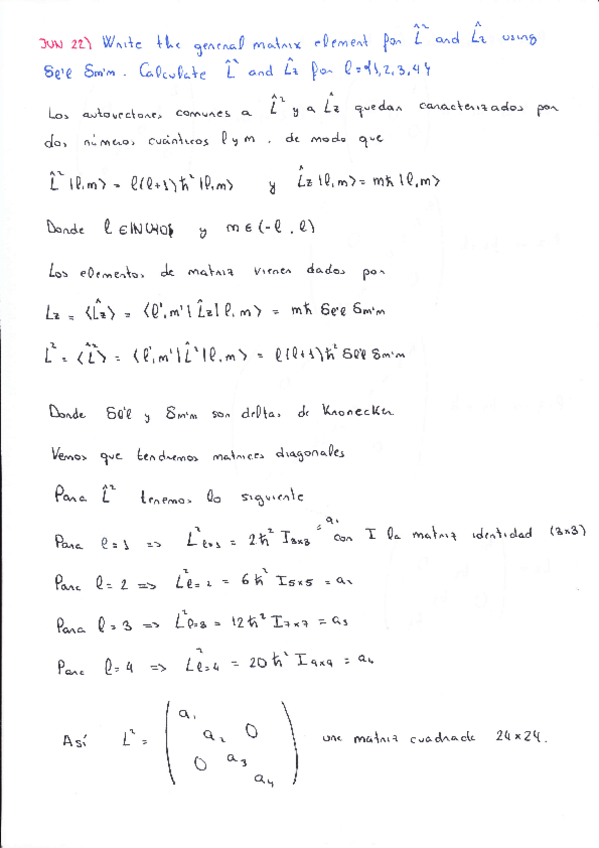 JUN 22) Write the general matrix element for L̂² and L̂z using
δℓ'ℓ δm'm. Calculate L̂² and L̂z for ℓ={1,2,3,4}
Los autovectores comunes a L̂² y a L̂z quedan caracterizados por
dos números cuánticos ℓ y m. de modo que
L̂²|ℓ,m> = ℓ(ℓ+1)ħ²|ℓ,m> y L̂z|ℓ,m> = mħ|ℓ,m>
Donde ℓ ∈ ℕ∪{0} y m ∈ (-ℓ, ℓ)
Los elementos de matriz vienen dados por
Lz = <L̂z> = <ℓ',m'|L̂z|ℓ,m> = mħ δℓ'ℓ δm'm
L² = <L̂²> = <ℓ',m'|L̂²|ℓ,m> = ℓ(ℓ+1)ħ² δℓ'ℓ δm'm
Donde δℓ'ℓ y δm'm son deltas de Kronecker
Vemos que tendremos matrices diagonales
Para L̂² tenemos lo siguiente
Para ℓ=1 => L²ℓ=1 = 2ħ² I3x3 = a1 con I la matriz identidad (3x3)
Para ℓ=2 => L²ℓ=2 = 6ħ² I5x5 = a2
Para ℓ=3 => L²ℓ=3 = 12ħ² I7x7 = a3
Para ℓ=4 => L²ℓ=4 = 20ħ² I9x9 = a4
a1
a2 0
Así L² = una matriz cuadrada 24x24.
0 a3
a4